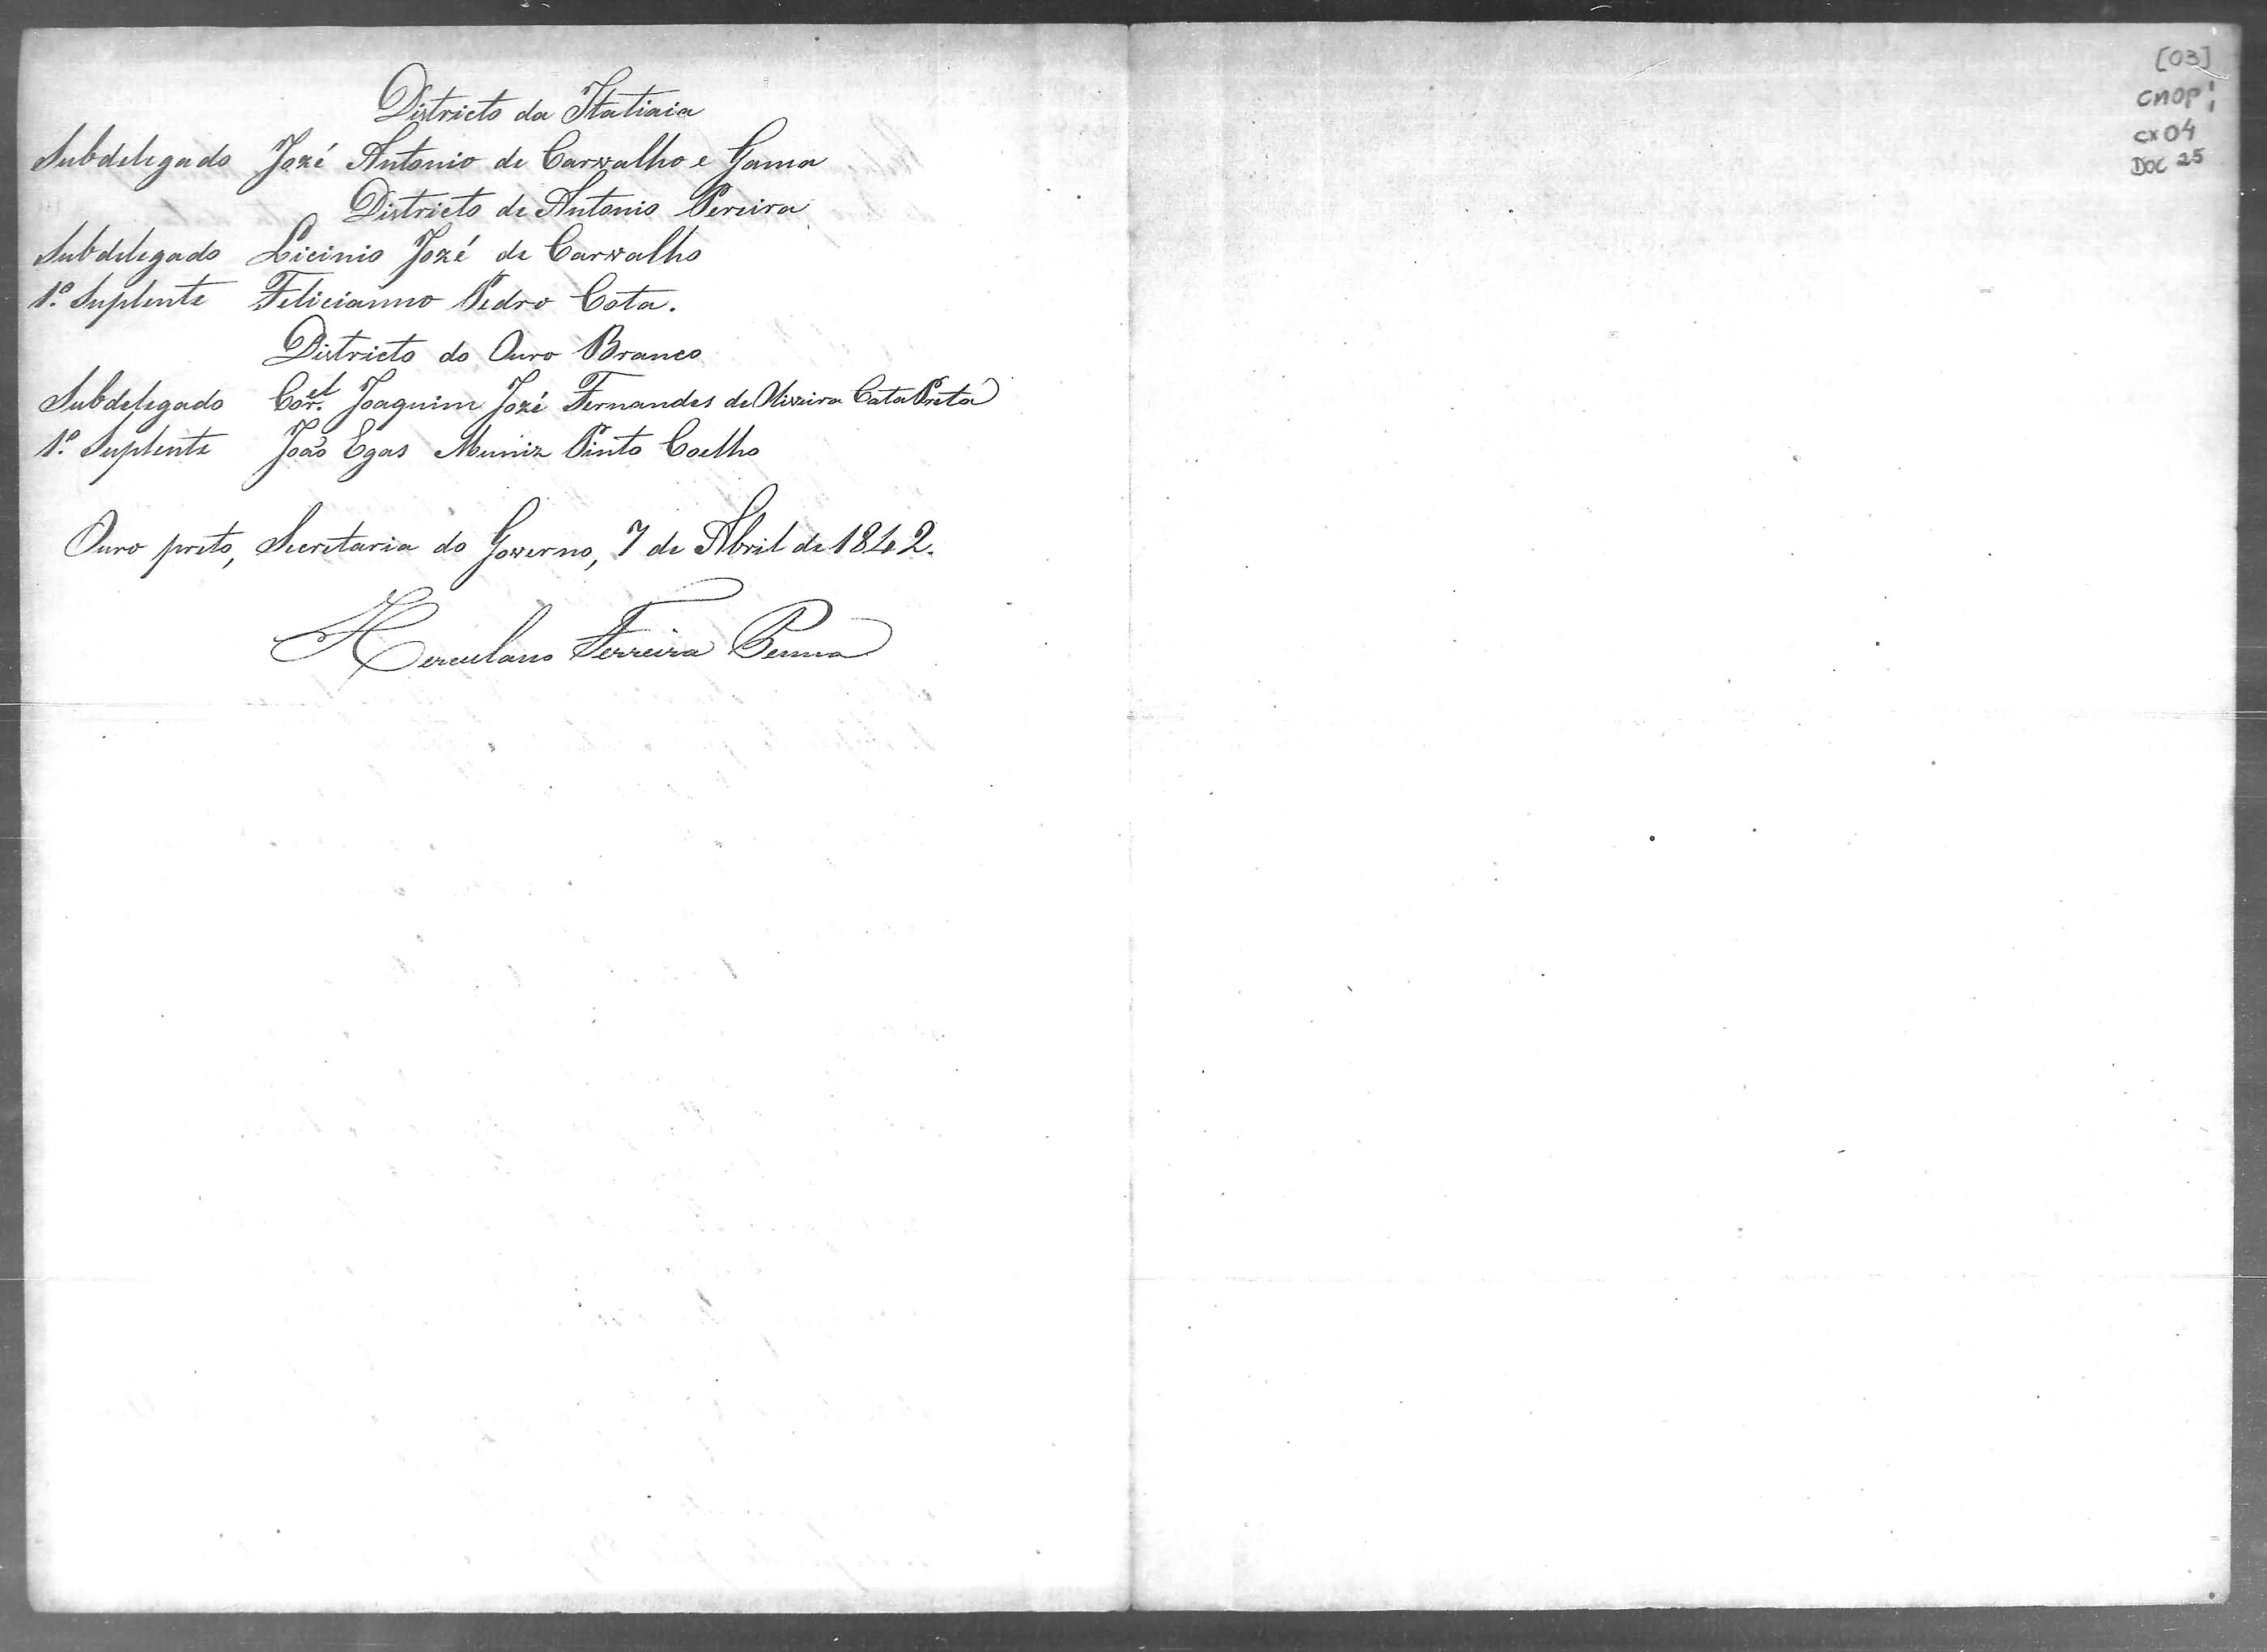 Districto da Itatiaia
Subdelegado José Antonio de Carvalho e Gama
Districto de Antonio Pereira
Subdelegado Licinio José de Carvalho
1.º Suplente Felicianno Pedro Cota.
Districto do Ouro Branco
Subdelegado Cor.el Joaquim José Fernandes de Oliveira Cata Preta
1.º Suplente João Egas Muniz Pinto Coelho
Ouro preto, Secretaria do Governo, 7 de Abril de 1842.
Herculano Ferreira Penna
[03]
CMOP
cx 04
Doc 25